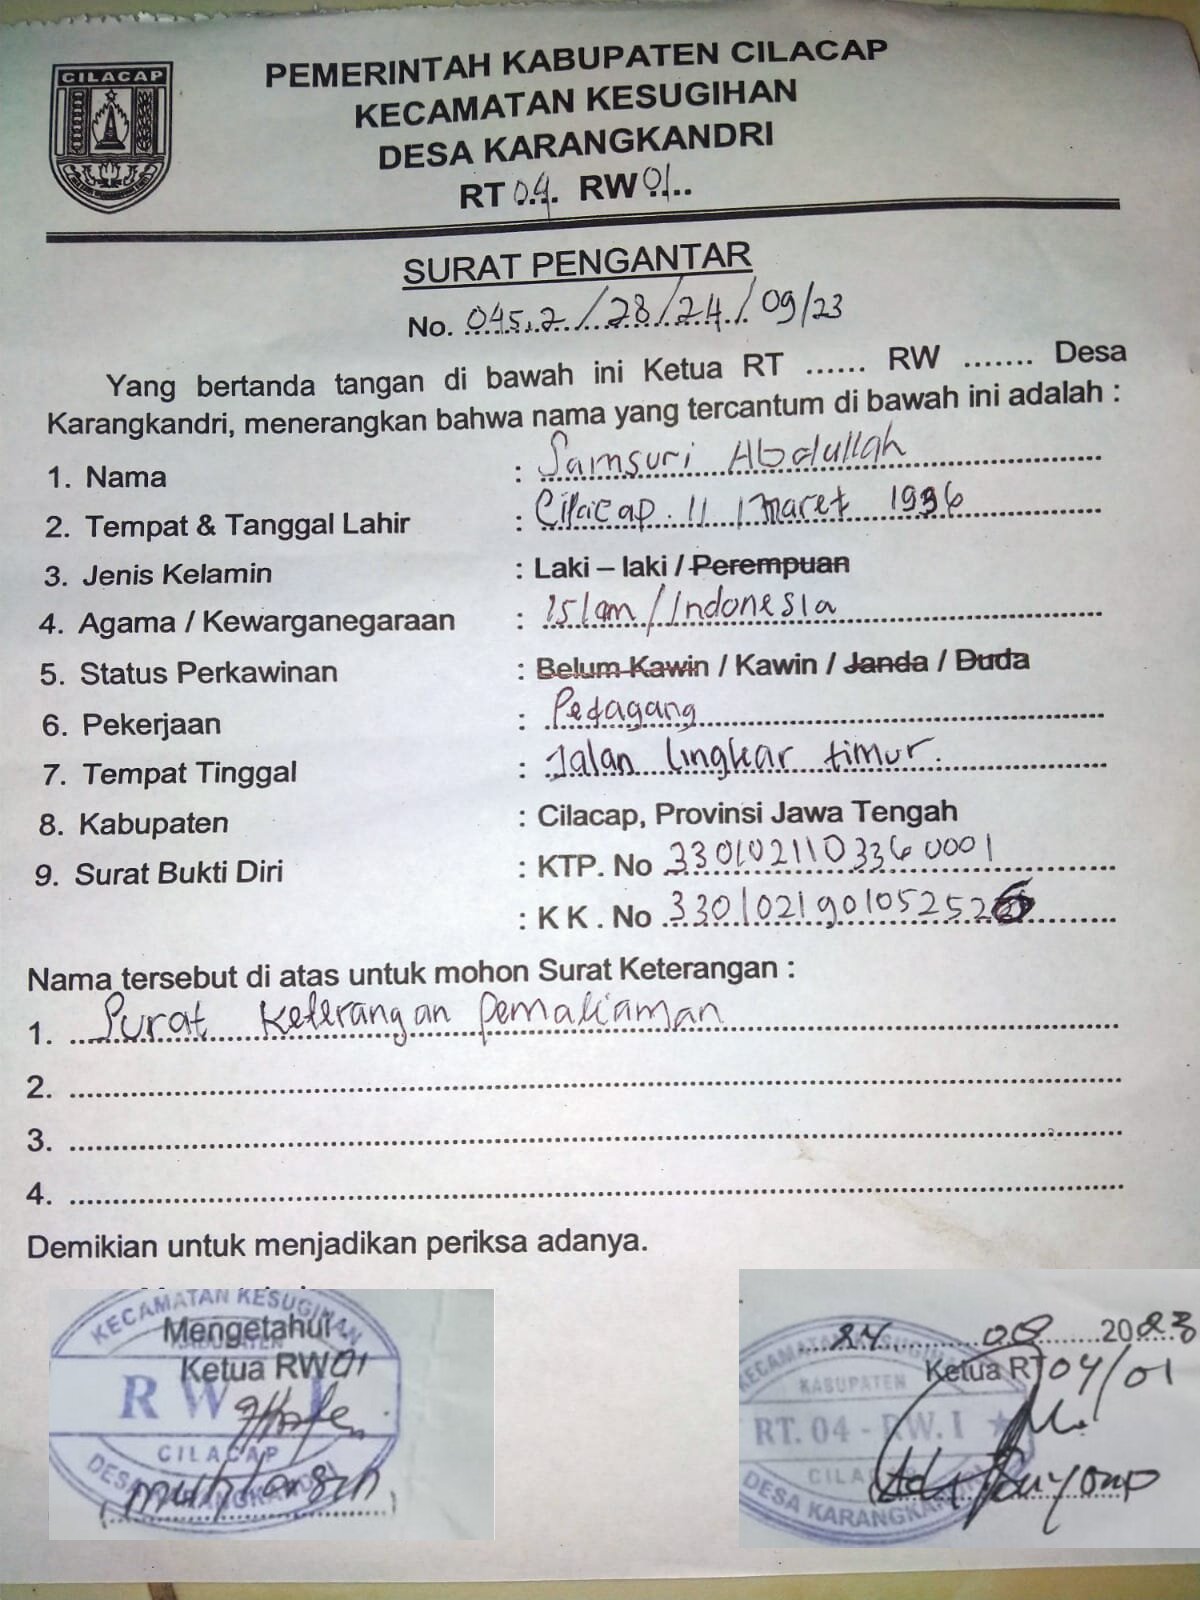 CILACAP
PEMERINTAH KABUPATEN CILACAP
KECAMATAN KESUGIHAN
DESA KARANGKANDRI
RT 04. RW 01...
SURAT PENGANTAR
No. 045.2/28/24/09/23
Yang bertanda tangan di bawah ini Ketua RT ...... RW ....... Desa
Karangkandri, menerangkan bahwa nama yang tercantum di bawah ini adalah :
1. Nama : Samsuri Abdullah
2. Tempat & Tanggal Lahir : Cilacap. 11 Maret 1996
3. Jenis Kelamin : Laki – laki / Perempuan
4. Agama / Kewarganegaraan : Islam / Indonesia
5. Status Perkawinan : Belum Kawin / Kawin / Janda / Duda
6. Pekerjaan : Pedagang
7. Tempat Tinggal : Jalan lingkar timur.
8. Kabupaten : Cilacap, Provinsi Jawa Tengah
9. Surat Bukti Diri : KTP. No 3301021103360001
: K K . No 330102190105252
Nama tersebut di atas untuk mohon Surat Keterangan :
1. Surat Keterangan Pemakaman
2.
3.
4.
Demikian untuk menjadikan periksa adanya.
KECAMATAN KESUGIHAN
Mengetahui
KABUPATEN
Ketua RW 01
RW I
CILACAP
DESA KARANGKANDRI
2023
KECAMATAN KESUGIHAN
Ketua RT 04/01
KABUPATEN
RT. 04 - RW. I
CILACAP
DESA KARANGKANDRI